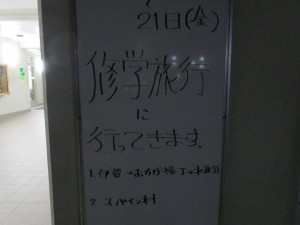 21日(金)
修学旅行
に
行ってきます。
1. 伊賀→おかげ横丁→水族館
2. スペイン村